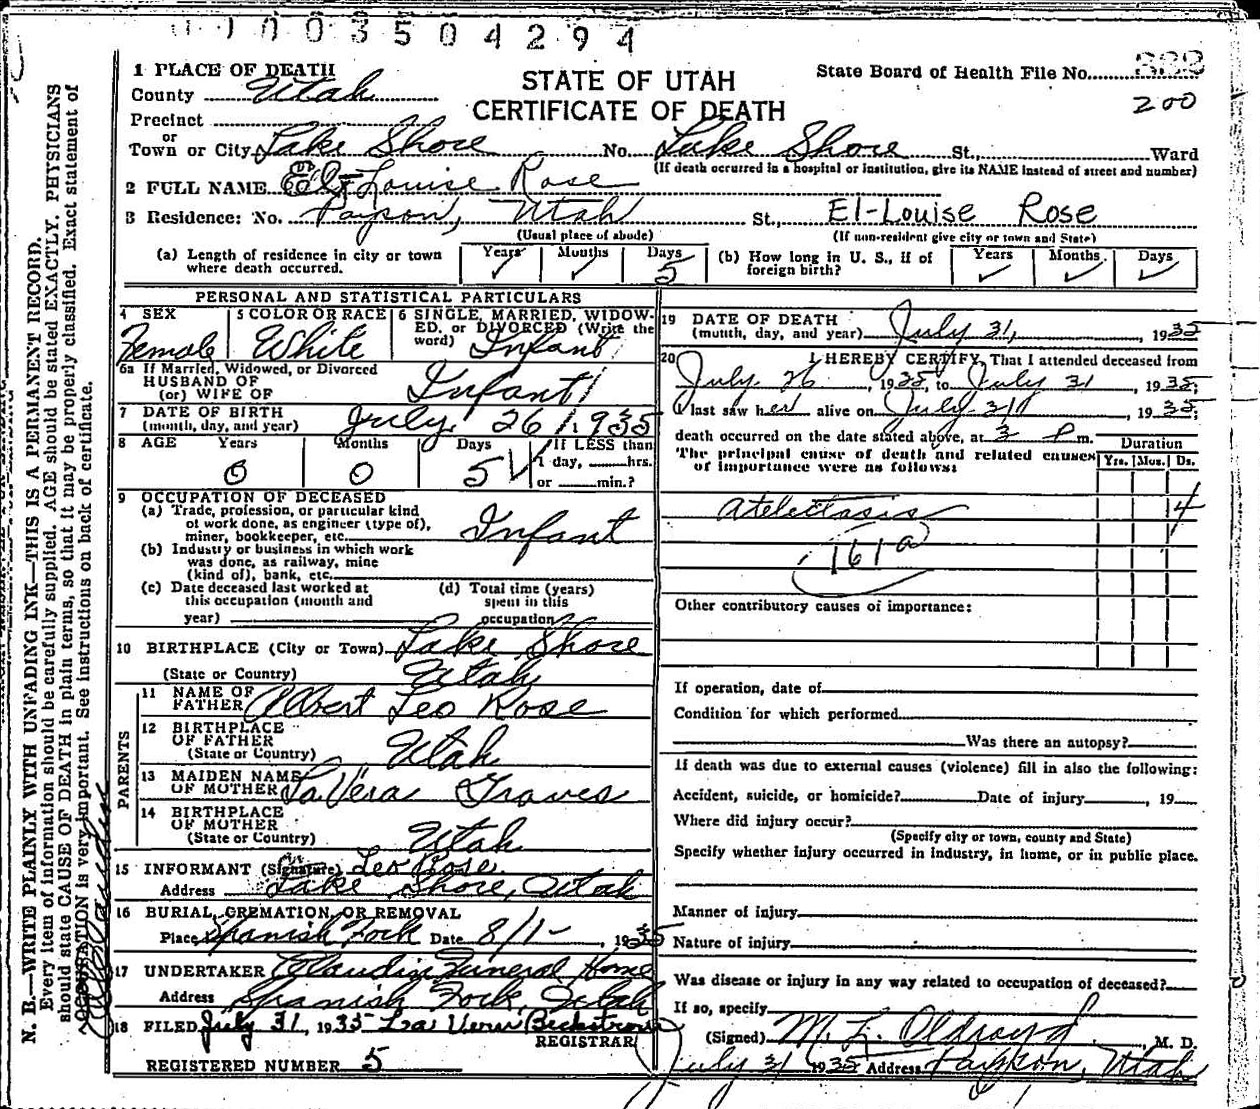 1 0 0 3 5 0 4 2 9 4
1 PLACE OF DEATH
STATE OF UTAH
CERTIFICATE OF DEATH
State Board of Health File No.
200
County Utah
Precinct
or
Town or City Lake Shore No. Lake Shore St., Ward
(If death occurred in a hospital or institution, give its NAME instead of street and number)
2 FULL NAME Louise Rose
3 Residence: No. Payson, Utah St., El-Louise Rose
(Usual place of abode) (If non-resident give city or town and State)
(a) Length of residence in city or town where death occurred. Years ✓ Months ✓ Days 5
(b) How long in U. S., if of foreign birth? Years ✓ Months ✓ Days ✓
PERSONAL AND STATISTICAL PARTICULARS
4 SEX Female
5 COLOR OR RACE White
6 SINGLE, MARRIED, WIDOWED, or DIVORCED (Write the word) Infant
6a If Married, Widowed, or Divorced
HUSBAND OF
(or) WIFE OF Infant
7 DATE OF BIRTH
(month, day, and year) July 26 1935
8 AGE Years 0 Months 0 Days 5 If LESS than 1 day, hrs. or min.?
9 OCCUPATION OF DECEASED
(a) Trade, profession, or particular kind
of work done, as engineer (type of),
miner, bookkeeper, etc. Infant
(b) Industry or business in which work
was done, as railway, mine
(kind of), bank, etc.
(c) Date deceased last worked at
this occupation (month and
year)
(d) Total time (years)
spent in this
occupation
10 BIRTHPLACE (City or Town) Lake Shore
(State or Country) Utah
PARENTS
11 NAME OF
FATHER Albert Leo Rose
12 BIRTHPLACE
OF FATHER
(State or Country) Utah
13 MAIDEN NAME
OF MOTHER LaVera Graves
14 BIRTHPLACE
OF MOTHER
(State or Country) Utah
15 INFORMANT (Signature) Leo Rose
Address Lake Shore, Utah
16 BURIAL, CREMATION, OR REMOVAL
Place Spanish Fork Date 8/1-, 1935
17 UNDERTAKER Claudin Funeral Home
Address Spanish Fork, Utah
18 FILED July 31, 1935 La Vern Beckstrom
REGISTRAR
REGISTERED NUMBER 5
19 DATE OF DEATH
(month, day, and year) July 31, 1935
20 I HEREBY CERTIFY, That I attended deceased from
July 26, 1935, to July 31, 1935;
I last saw her alive on July 31, 1935;
death occurred on the date stated above, at 3 P m.
The principal cause of death and related causes
of importance were as follows:
Duration
Yrs. Mos. Ds.
Atelectasis 4
161a
Other contributory causes of importance:
If operation, date of
Condition for which performed
Was there an autopsy?
If death was due to external causes (violence) fill in also the following:
Accident, suicide, or homicide? Date of injury, 19
Where did injury occur?
(Specify city or town, county and State)
Specify whether injury occurred in industry, in home, or in public place.
Manner of injury
Nature of injury
Was disease or injury in any way related to occupation of deceased?
If so, specify
(Signed) M. L. Oldroyd, M. D.
July 31 1935 Address Payson, Utah
N. B.—WRITE PLAINLY WITH UNFADING INK—THIS IS A PERMANENT RECORD.
Every item of information should be carefully supplied. AGE should be stated EXACTLY. PHYSICIANS
should state CAUSE OF DEATH in plain terms, so that it may be properly classified. Exact statement of
OCCUPATION is very important. See instructions on back of certificate.